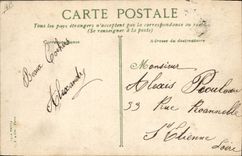 CARTE POSTALE
Tous les pays étrangers n'acceptent pas la correspondance au recto
(Se renseigner à la poste)
Correspondance
Adresse du destinataire
Doux
Alexandre
Monsieur
Alexis
33 Rue Roannelle
St Etienne
Loire